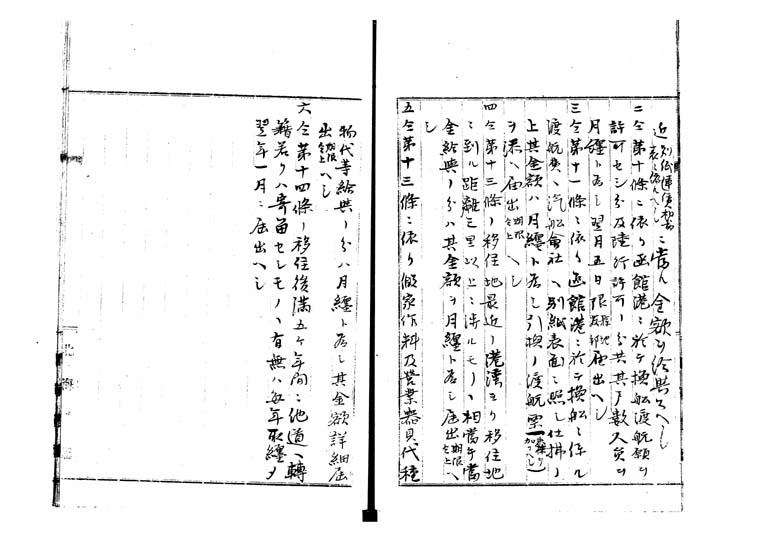 近(別紙運賃表ニ依ルヘシ)ニ当ル金額ヲ給与スヘシ
二仝第十條ニ依リ函館港ニ於テ換船渡航願ヲ
許可セシ分及陸行許可ノ分共其戸数人員ヲ
月纏トナシ翌月五日限届出ヘシ
三仝第十一條ニ依リ函館港ニ於テ換船ニ係ル
渡航費ハ汽船會社ヘ別紙表面ニ照シ仕拂ノ
上其金額ハ月纏ト為シ引換ノ渡航票
ヲ添ヘ届出(期限仝上)ヘシ
四仝第十三條ノ移住地最近ノ港湾ヨリ移住地
ニ到ル距離三里以上ニ渉ルモノヘ相當手當
金給與ノ分ハ其金額ヲ月纏ト為シ届出(期限仝上)ヘ
シ
五仝第十三條ニ依リ仮家作料及営業器具代種
物代等給與ノ分ハ月纏ト為シ其金額詳細届
出(期限仝上)ヘシ
六仝第十四條ノ移住後満五ヶ年間ニ他道ヘ轉
籍若クハ寄留セシモノヽ有無ハ毎年取纏メ
翌年一月ニ届出ヘシ